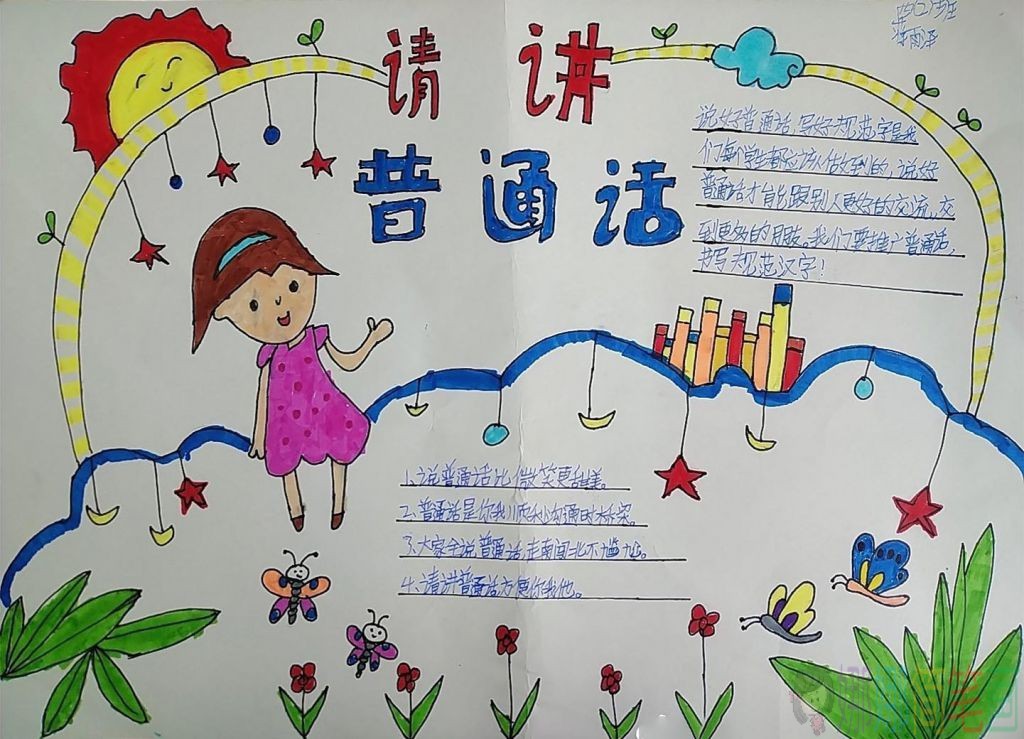 请讲
普通话
说好普通话,写好规范字是我
们每个学生都应该做到的,说好
普通话才能跟别人更好的交流,交
到更多的朋友。我们要推广普通话,
书写规范汉字!
1、说普通话比微笑更甜美。
2、普通话是你我顺利沟通的桥梁。
3、大家全说普通话,走南闯北不尴尬。
4、请讲普通话方便你我他。